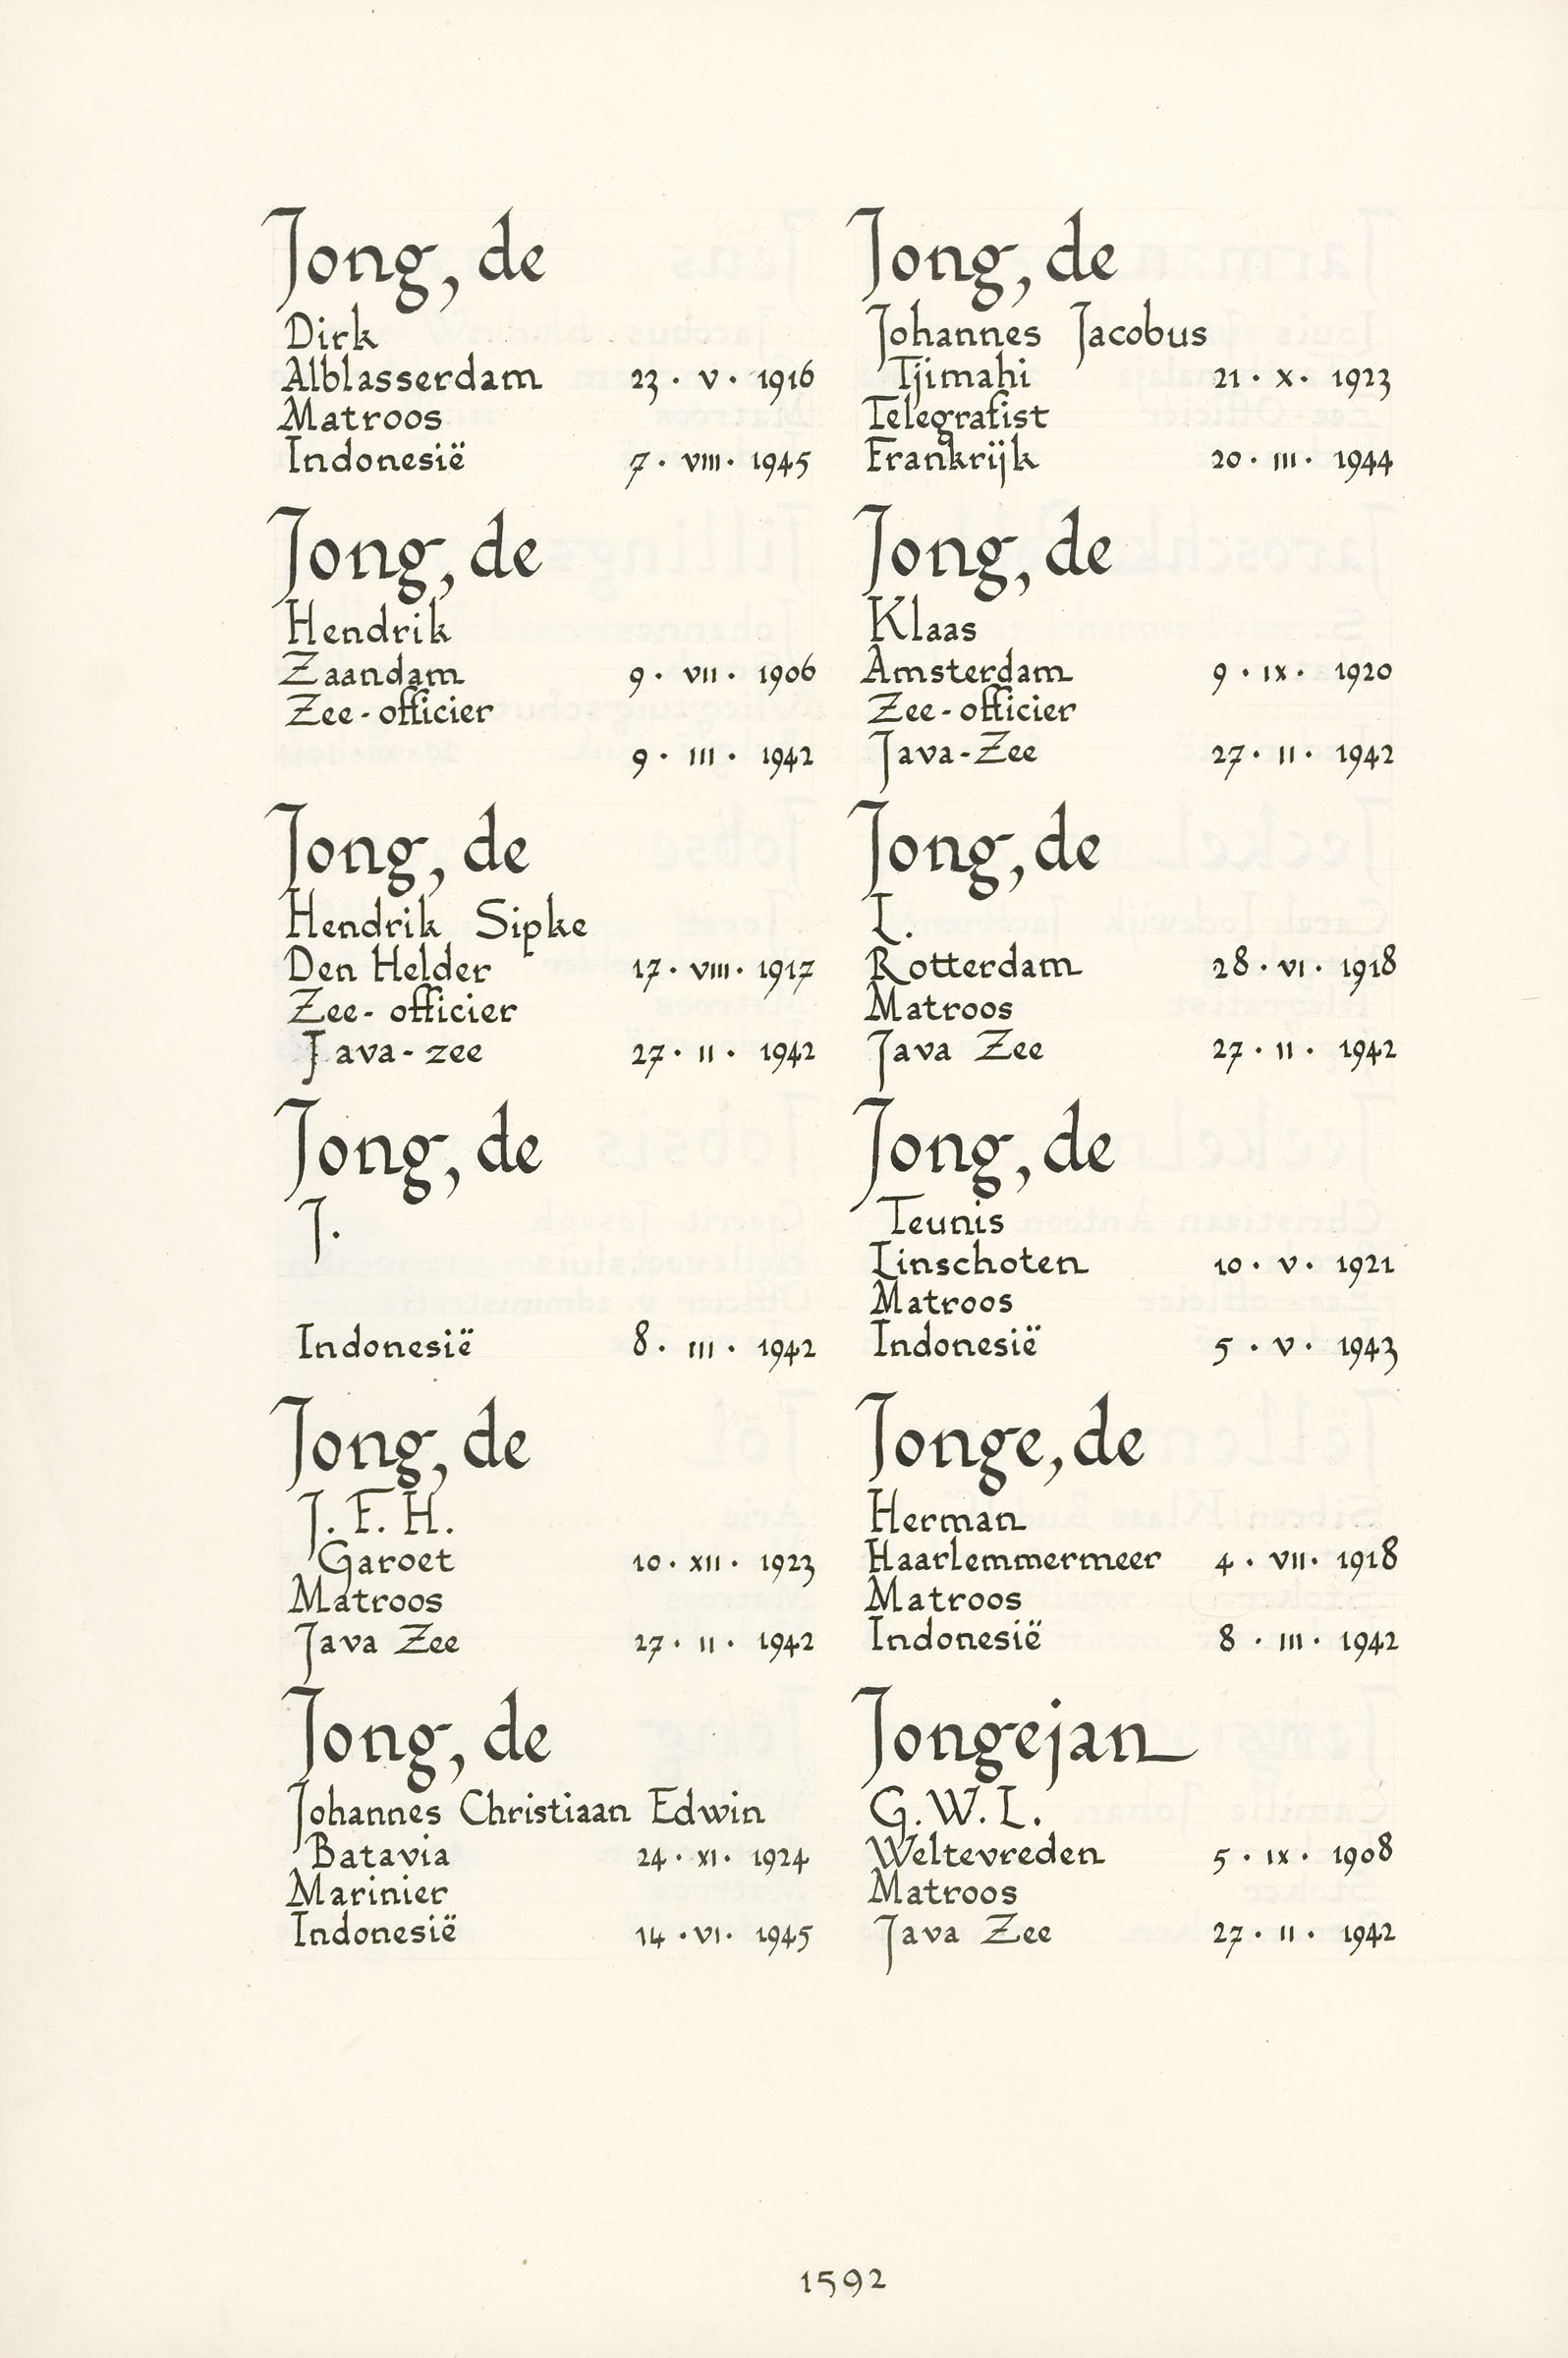 Jong, de
Dirk
Alblasserdam 23 · V · 1916
Matroos
Indonesië 7 · VIII · 1945
Jong, de
Hendrik
Zaandam 9 · VII · 1906
Zee-officier
9 · III · 1942
Jong, de
Hendrik Sipke
Den Helder 17 · VIII · 1917
Zee-officier
Java-zee 27 · II · 1942
Jong, de
J.
Indonesië 8 · III · 1942
Jong, de
J. F. H.
Garoet 10 · XII · 1923
Matroos
Java Zee 27 · II · 1942
Jong, de
Johannes Christiaan Edwin
Batavia 24 · XI · 1924
Marinier
Indonesië 14 · VI · 1945
Jong, de
Johannes Jacobus
Tjimahi 21 · X · 1923
Telegrafist
Frankrijk 20 · III · 1944
Jong, de
Klaas
Amsterdam 9 · IX · 1920
Zee-officier
Java-Zee 27 · II · 1942
Jong, de
L.
Rotterdam 28 · VI · 1918
Matroos
Java Zee 27 · II · 1942
Jong, de
Teunis
Linschoten 10 · V · 1921
Matroos
Indonesië 5 · V · 1943
Jonge, de
Herman
Haarlemmermeer 4 · VII · 1918
Matroos
Indonesië 8 · III · 1942
Jongejan
G. W. L.
Weltevreden 5 · IX · 1908
Matroos
Java Zee 27 · II · 1942
1592